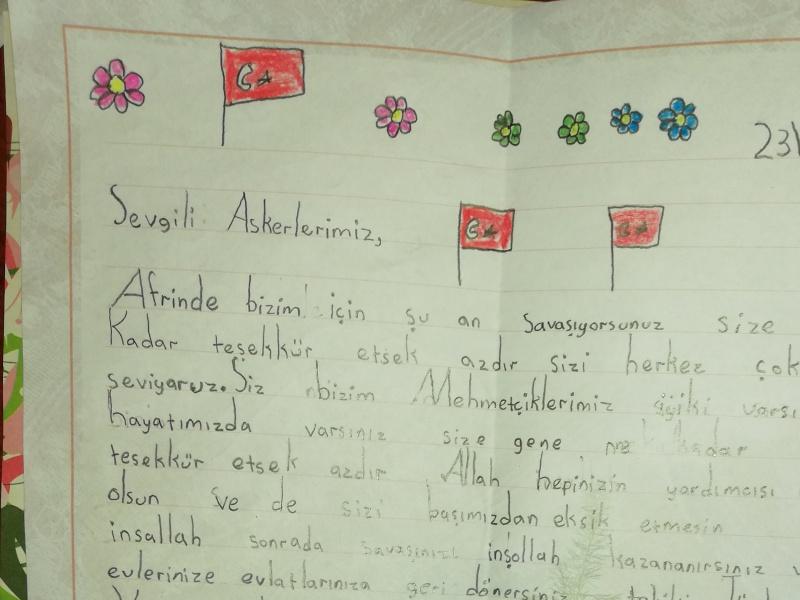 23
Sevgili Askerlerimiz,
Afrinde bizim için şu an Savaşıyorsunuz size
Kadar teşekkür etsek azdır sizi herkez çok
seviyoruz. Siz bizim Mehmetçiklerimiz iyiki varsı
hayatımızda varsınız size gene ne kadar
teşekkür etsek azdır Allah hepinizin yardımcısı
olsun ve de sizi başımızdan eksik etmesin
insallah sonrada savaşınızı inşollah kazananırsınız v
evlerinize evlatlarınıza geri dönersiniz